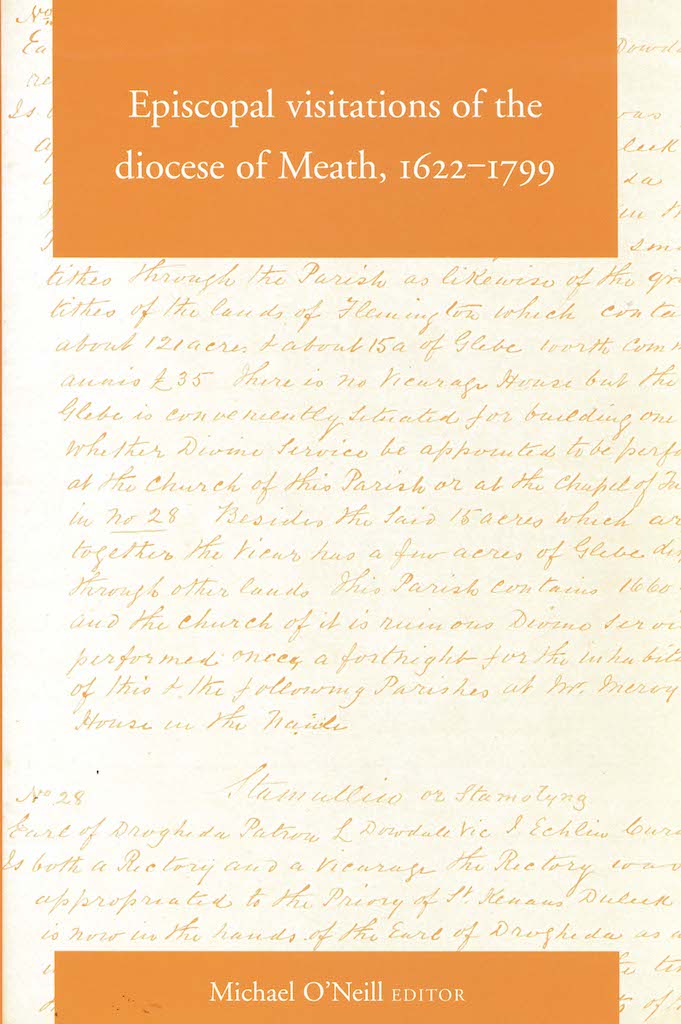 No
Episcopal visitations of the
diocese of Meath, 1622–1799
tithes through the Parish as likewise of the
tithes of the lands of Flemington which
about 121 acres & about 15a of Glebe worth
annis £35 There is no Vicarage House but the
Glebe is conveniently situated for building one
whether Divine Service be appointed to be
at the Church of this Parish or at the Chapel of
in No 28 Besides the said 15 acres which
together the Vicar has a few acres of Glebe
through other lands This Parish contains 1660
and the church of it is ruinous Divine
performed once a fortnight for the
of this & the following Parishes at Mr.
House in the
No 28 Stamullin or Stamolyng
Earl of Drogheda Patron L Dowdall Vic J. Echlin
Is both a Rectory and a Vicarage the Rectory was
appropriated to the Priory of St. Kenans Duleek
is now in the hands of the Earl of Drogheda as a
Michael O’Neill EDITOR